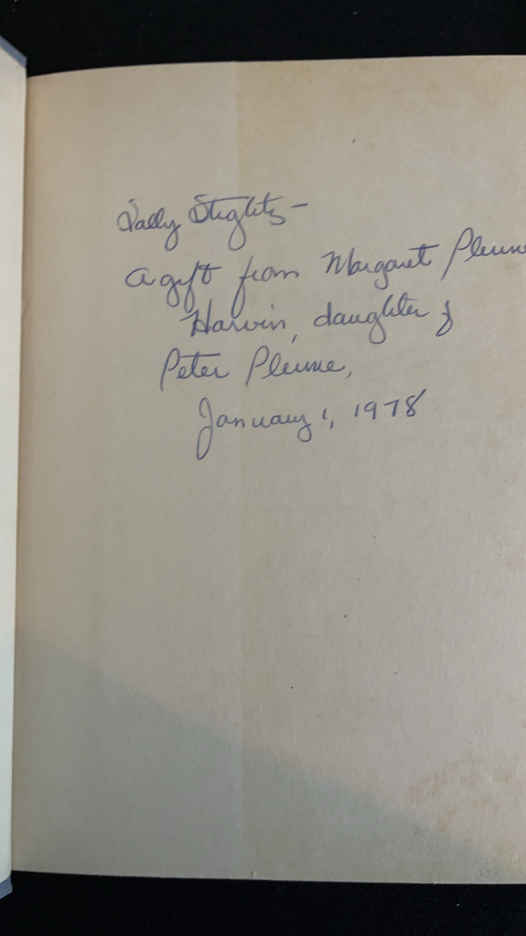 Sally Stiglitz –
a gift from Margaret Plume
Harvin, daughter of
Peter Plume,
January 1, 1978